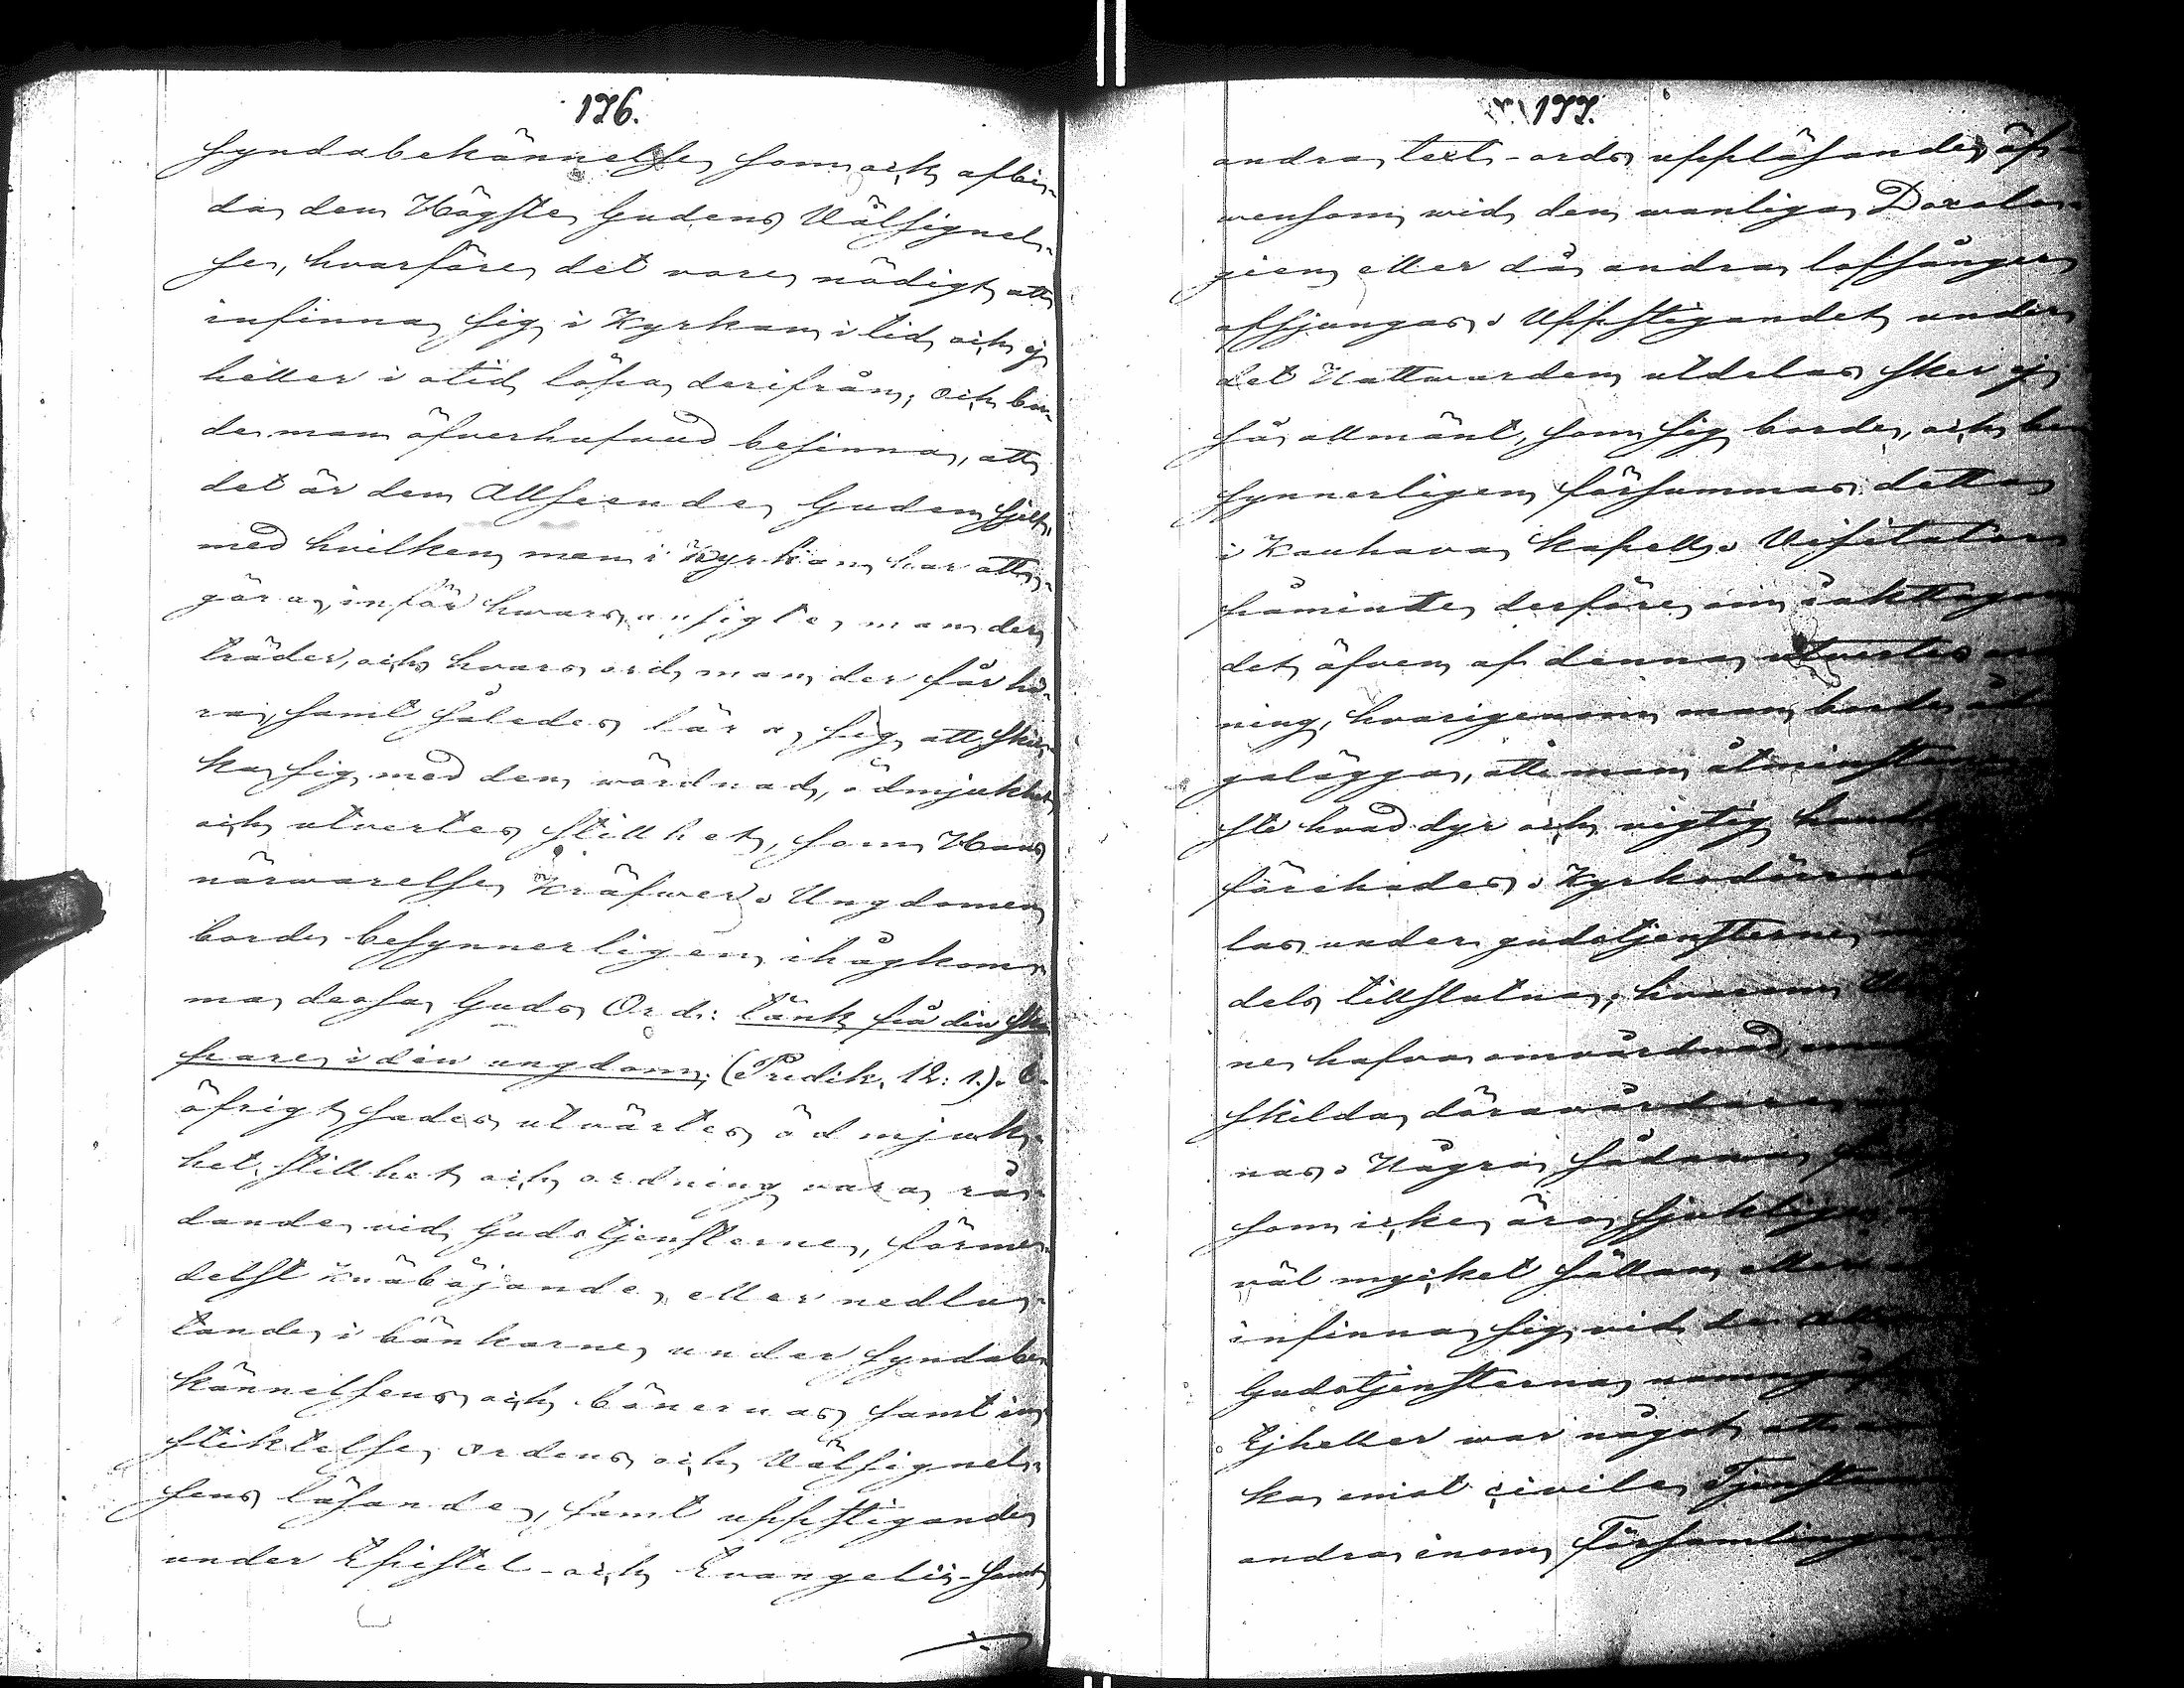 176.
syndabekännelse, som ock afbi-
da den Högste Gudens Välsignel-
se, hvarföre det vore nödigt att
infinna sig i Kyrkan i tid och ej
heller i otid löpa derifrån; och bor-
de man öfverhufvud besinna, att
det är den Allseende Guden sjelf,
med hvilken man i Kyrkan har att
göra, inför hwars ansigte man der
träder, och hvars ord man der får hö-
ra, samt således lära sig att skic-
ka sig med den wördnad, ödmjukhet
och utvertes stillhet, som Hans
närwarelse kräfwer. Ungdomen
borde besynnerligen ihågkom-
ma dessa Guds Ord: tänk på din ska-
pare i din ungdom; (Predik. 12: 1.).
öfrigt sades utvärtes ödmjuk-
het, stillhet och ordning vara rå-
dande vid Gudstjensterne, förme-
delst knäböjande eller nedlu-
tande i bänkarne under syndabe-
kännelsens och bönernas samt in-
stiktelse ordens och Välsignel-
sens läsande, samt uppstigande
under Epistel- och Evangelii- samt
177.
andra text-ords uppläsande, äf-
vensom wid den wanliga Doxolo-
gien eller då andra lofsånger
afsjungas. Uppstigandet under
det Nattwarden utdelas sker ej
så allmänt, som sig borde, och be-
synnerligen försummas detta
i Kauhava kapell. Visitator
påminte derföre om iakttagan-
det äfven af denna utvertes ord-
ning, hvarigenom man borde
galägga, att man åtminstone
ste hvad dyr och vigtig
förehades. Kyrkodörrarne
las under gudstjensterne
dels tillslutna, hvarom
ne hafva omvårdnad,
skilda dörawårdare
nas. Några sådana
som icke äro sjukliga
väl mycket sällan eller
infinna sig vid de
Gudstjensterna
Ejheller war något att
ka emot civile Tjenste
andra inom Församlingen